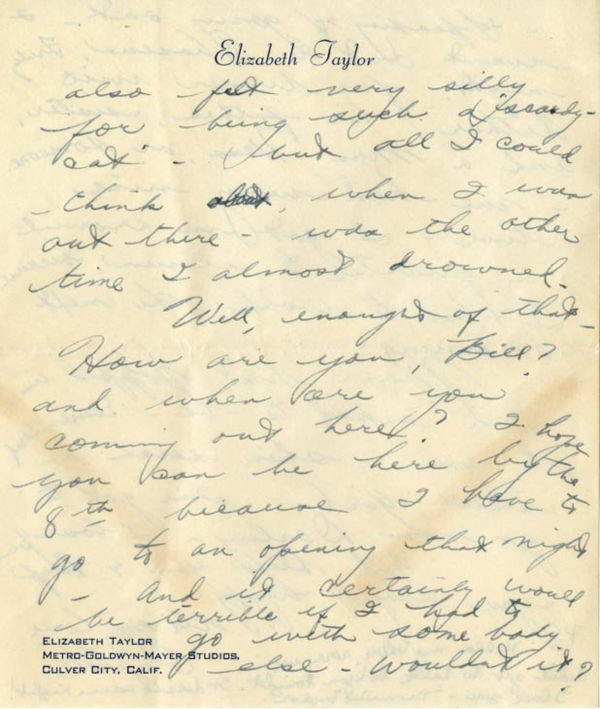 Elizabeth Taylor
also felt very silly
for being such a "scardy-
cat" - but all I could
- think about, when I was
out there - was the other
time I almost drowned.
Well, enough of that -
How are you, Bill?
and when are you
coming out here? I hope
you can be here by the
8th because I have to
go to an opening that night
- and it certainly would
be terrible if I had to
go with some body
else - wouldn't it?
ELIZABETH TAYLOR
METRO-GOLDWYN-MAYER STUDIOS,
CULVER CITY, CALIF.